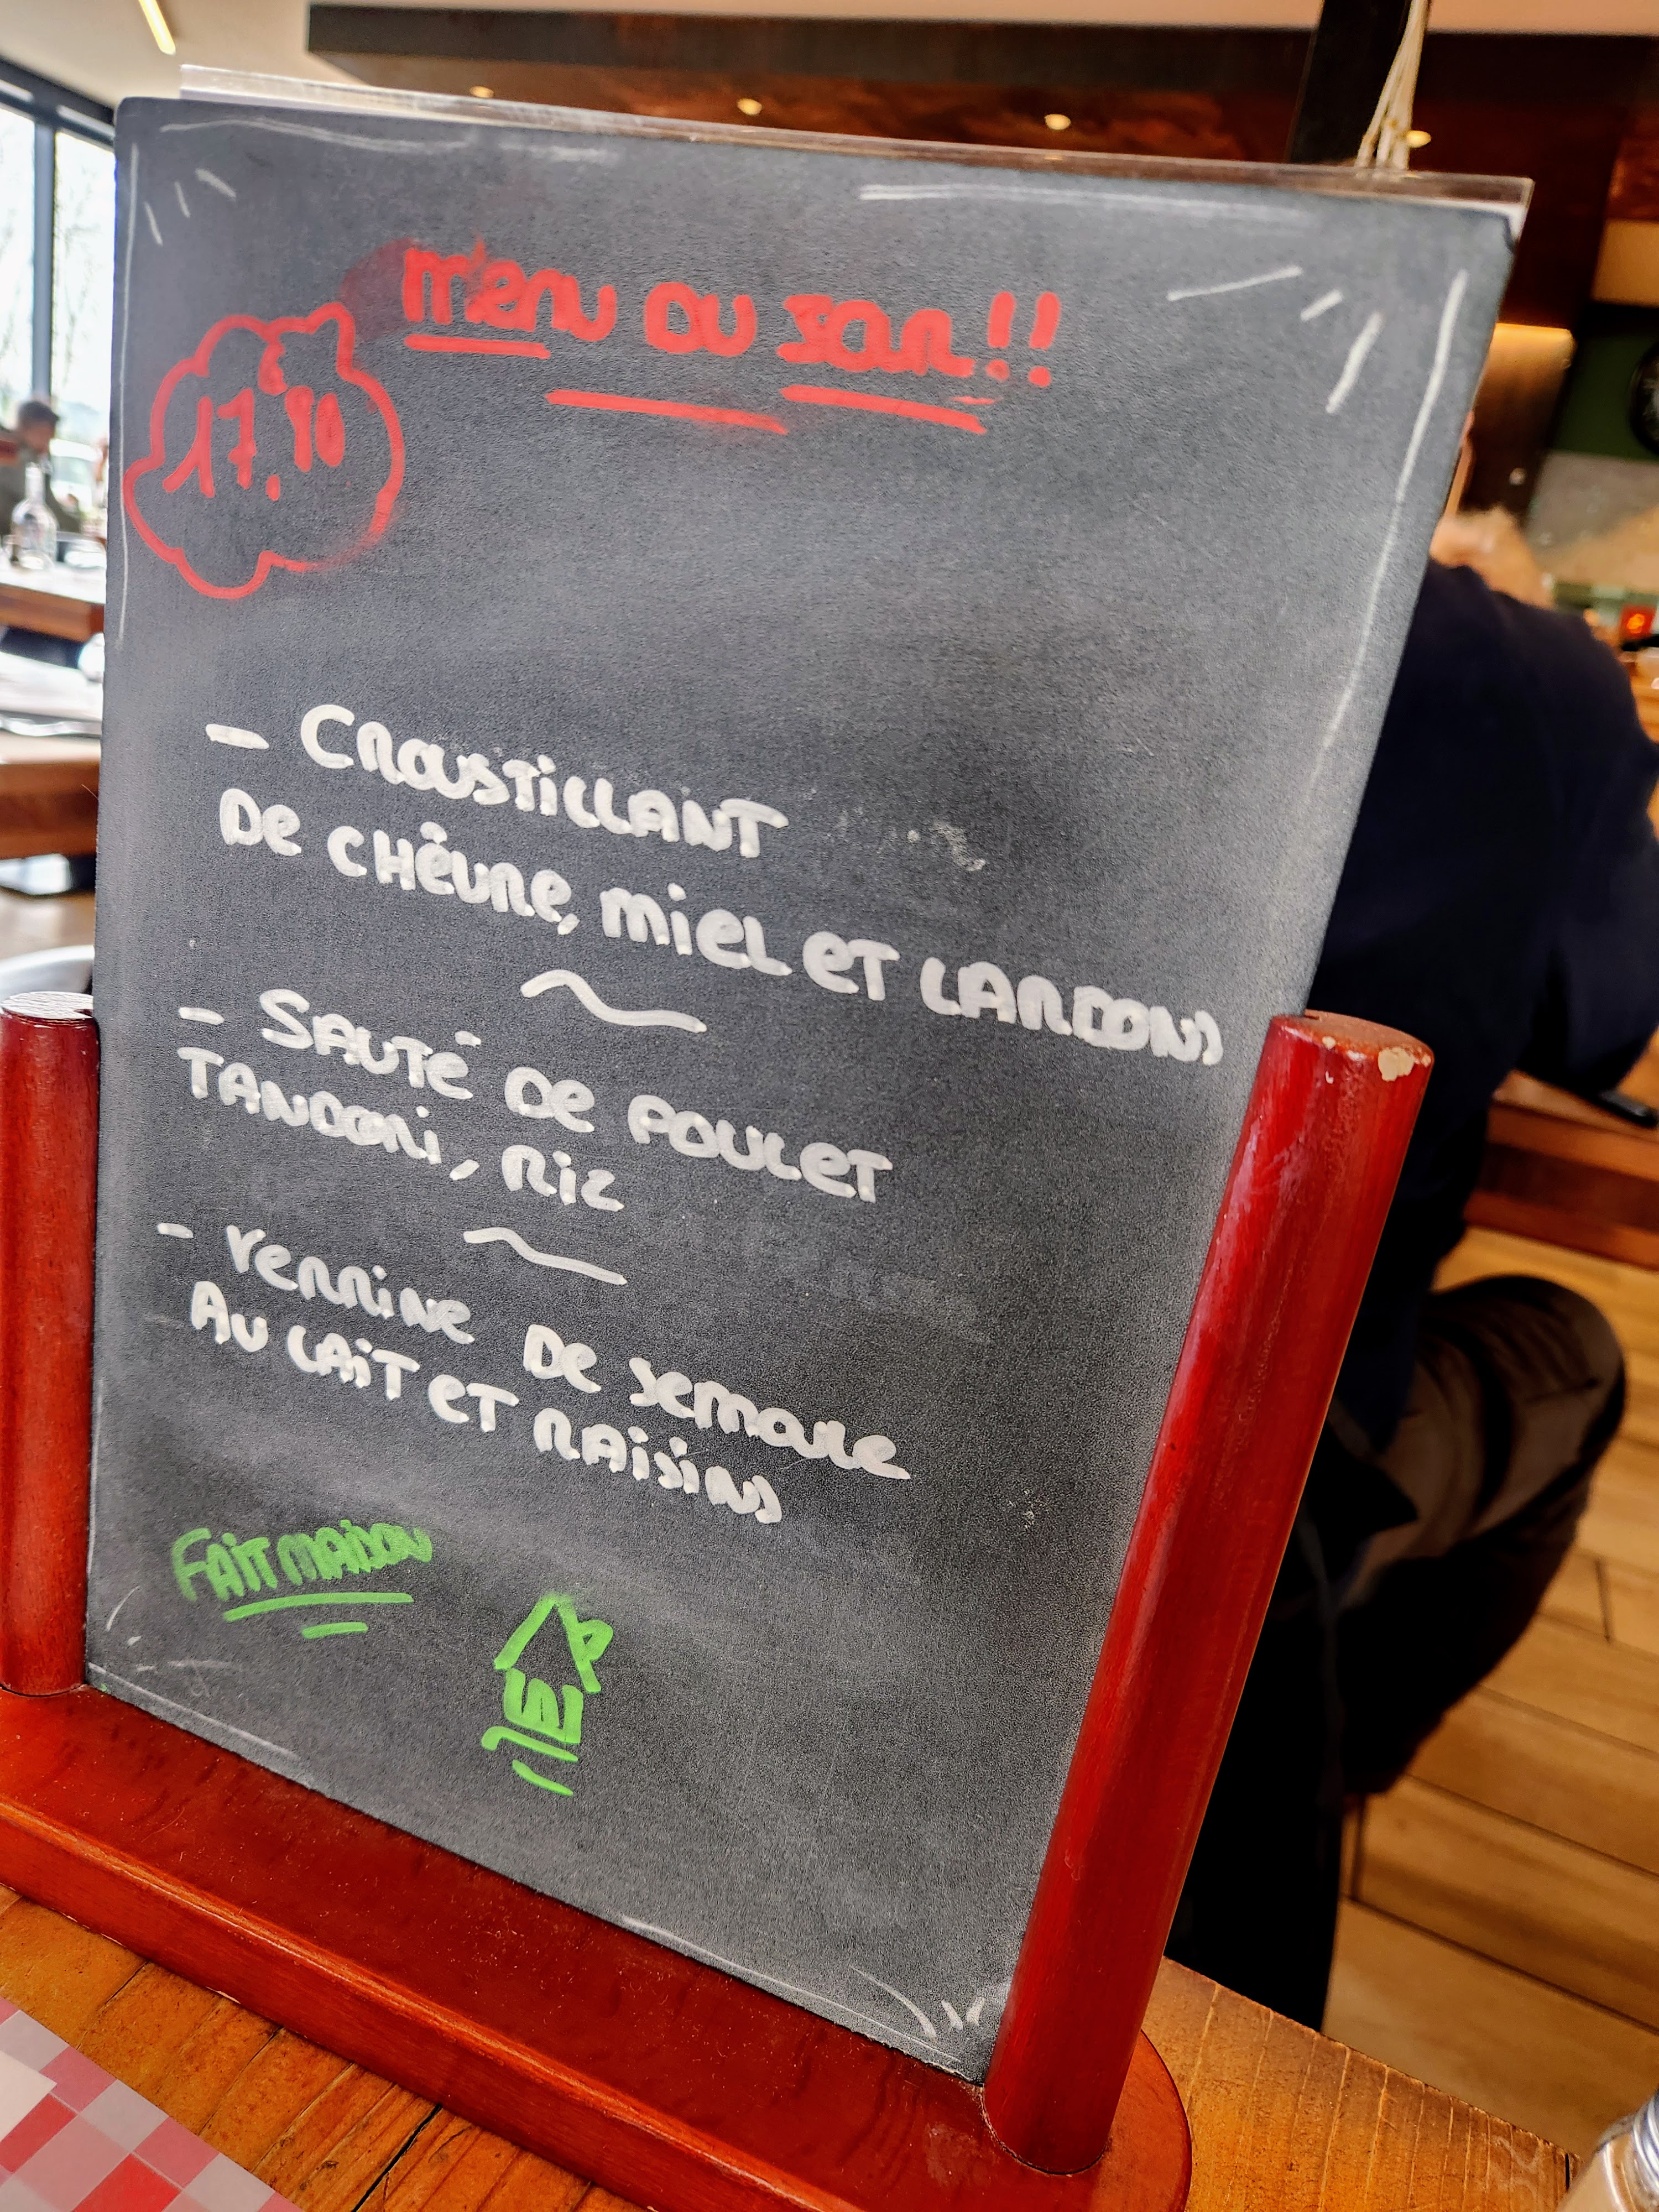 Menu du Jour!!
€
17.90
- Croustillant
de chèvre, miel et lardons
~
- Sauté de poulet
tandori, riz
~
- Verrine de semoule
au lait et raisins
Fait maison